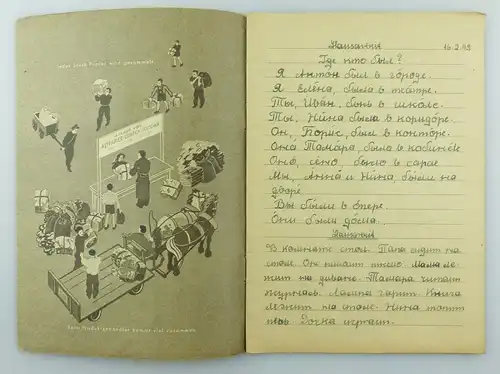 Jedes Stück Papier wird gesammelt
Beim Produktenhändler kommt viel zusammen
16.2.49
Где кто был?
Я Антон был в городе.
Я Елена, была в театре.
Ты, Иван, был в школе.
Ты, Нина была в коридоре.
Он, Борис, был в конторе.
Она Тамара, была в кабинете
Оно, сено, было в сарае
Мы, Анна и Нина, были на
дворе
Вы были в опере.
Они были дома.
В комнате стол. Папа сидит на
столе. Он пишет письмо. Мама ле-
жит на диване. Тамара читает
журналь. Лампа горит. Книга
лежит на столе. Нина
играет.